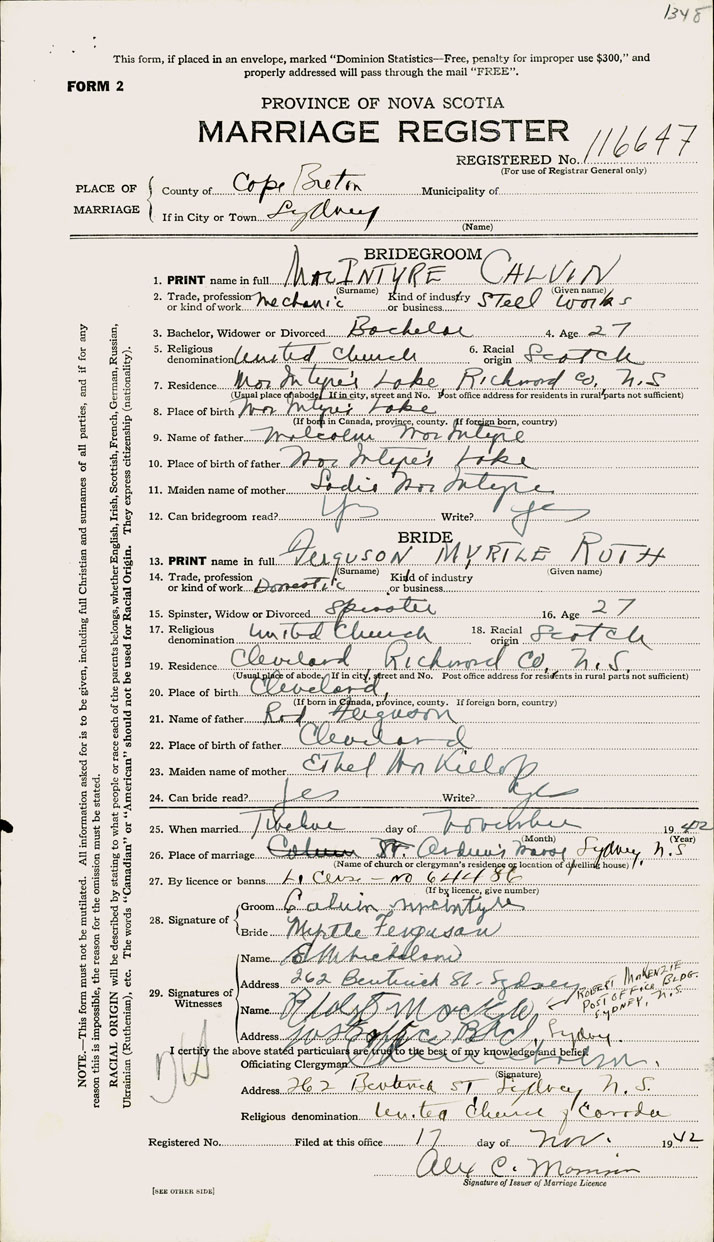 1348
This form, if placed in an envelope, marked "Dominion Statistics—Free, penalty for improper use $300," and
properly addressed will pass through the mail "FREE".
FORM 2
PROVINCE OF NOVA SCOTIA
MARRIAGE REGISTER
REGISTERED No. 116647
(For use of Registrar General only)
PLACE OF MARRIAGE
County of Cape Breton Municipality of
If in City or Town Sydney
(Name)
BRIDEGROOM
1. PRINT name in full MacINTYRE CALVIN
(Surname) (Given name)
2. Trade, profession or kind of work Mechanic Kind of industry or business Steel Works
3. Bachelor, Widower or Divorced Bachelor 4. Age 27
5. Religious denomination United Church 6. Racial origin Scotch
7. Residence MacIntyre's Lake, Richmond Co, N.S
(Usual place of abode. If in city, street and No. Post office address for residents in rural parts not sufficient)
8. Place of birth MacIntyre's Lake
(If born in Canada, province, county. If foreign born, country)
9. Name of father Malcolm MacIntyre
10. Place of birth of father MacIntyre's Lake
11. Maiden name of mother Sadie MacIntyre
12. Can bridegroom read? Yes Write? yes
BRIDE
13. PRINT name in full FERGUSON MYRTLE RUTH
(Surname) (Given name)
14. Trade, profession or kind of work Domestic Kind of industry or business
15. Spinster, Widow or Divorced Spinster 16. Age 27
17. Religious denomination United Church 18. Racial origin Scotch
19. Residence Cleveland, Richmond Co, N.S.
(Usual place of abode. If in city, street and No. Post office address for residents in rural parts not sufficient)
20. Place of birth Cleveland,
(If born in Canada, province, county. If foreign born, country)
21. Name of father Rod Ferguson
22. Place of birth of father Cleveland
23. Maiden name of mother Ethel MacKillop
24. Can bride read? Yes Write? Yes
25. When married Twelve day of November 1942
(Month) (Year)
26. Place of marriage St. Andrew's Manse, Sydney, N.S
(Name of church or clergyman's residence or location of dwelling house)
27. By licence or banns Licence - No 64436
(If by licence, give number)
28. Signature of
Groom Calvin McIntyre
Bride Myrtle Ferguson
29. Signatures of Witnesses
Name
Address 262 Bentinck St - Sydney
ROBERT McKENZIE
POST OFFICE BLDG.
SYDNEY, N.S.
Name
Address Post Office Bld, Sydney
I certify the above stated particulars are true to the best of my knowledge and belief.
Officiating Clergyman
(Signature)
Address 262 Bentinck St Sydney N.S.
Religious denomination United Church of Canada
Registered No. Filed at this office 17 day of Nov. 1942
Alex C. Morrison
Signature of Issuer of Marriage Licence
[SEE OTHER SIDE]
NOTE.—This form must not be mutilated. All information asked for is to be given, including full Christian and surnames of all parties, and if for any
reason this is impossible, the reason for the omission must be stated.
RACIAL ORIGIN will be described by stating to what people or race each of the parents belongs, whether English, Irish, Scottish, French, German, Russian,
Ukrainian (Ruthenian), etc. The words "Canadian" or "American" should not be used for Racial Origin. They express citizenship (nationality).